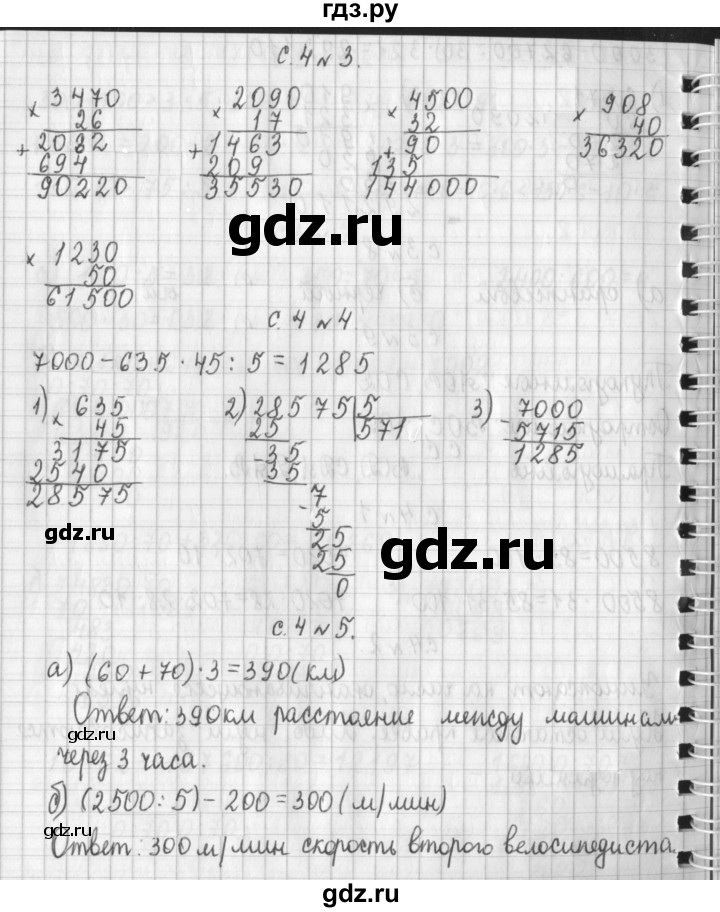 гдз.ру
с. 4 N 3.
× 3470
26
+ 2082
694
90220
× 2090
17
+ 1463
209
35530
× 4500
32
+ 90
135
144000
× 908
40
36320
gdz.ru
× 1230
50
61500
с. 4 N 4.
7000 − 635 · 45 : 5 = 1285
1) × 635
45
3175
2540
28575
2) 28575 5
25 571
− 35
35
7
− 5
25
25
0
3) 7000
− 5715
1285
gdz.ru
gdz.ru
с. 4 N 5.
а) (60 + 70) · 3 = 390 (км)
Ответ: 390 км расстояние между машинами
через 3 часа.
gdz.ru
б) (2500 : 5) − 200 = 300 (м/мин)
gdz.ru
Ответ: 300 м/мин скорость второго велосипедиста.
gdz.ru